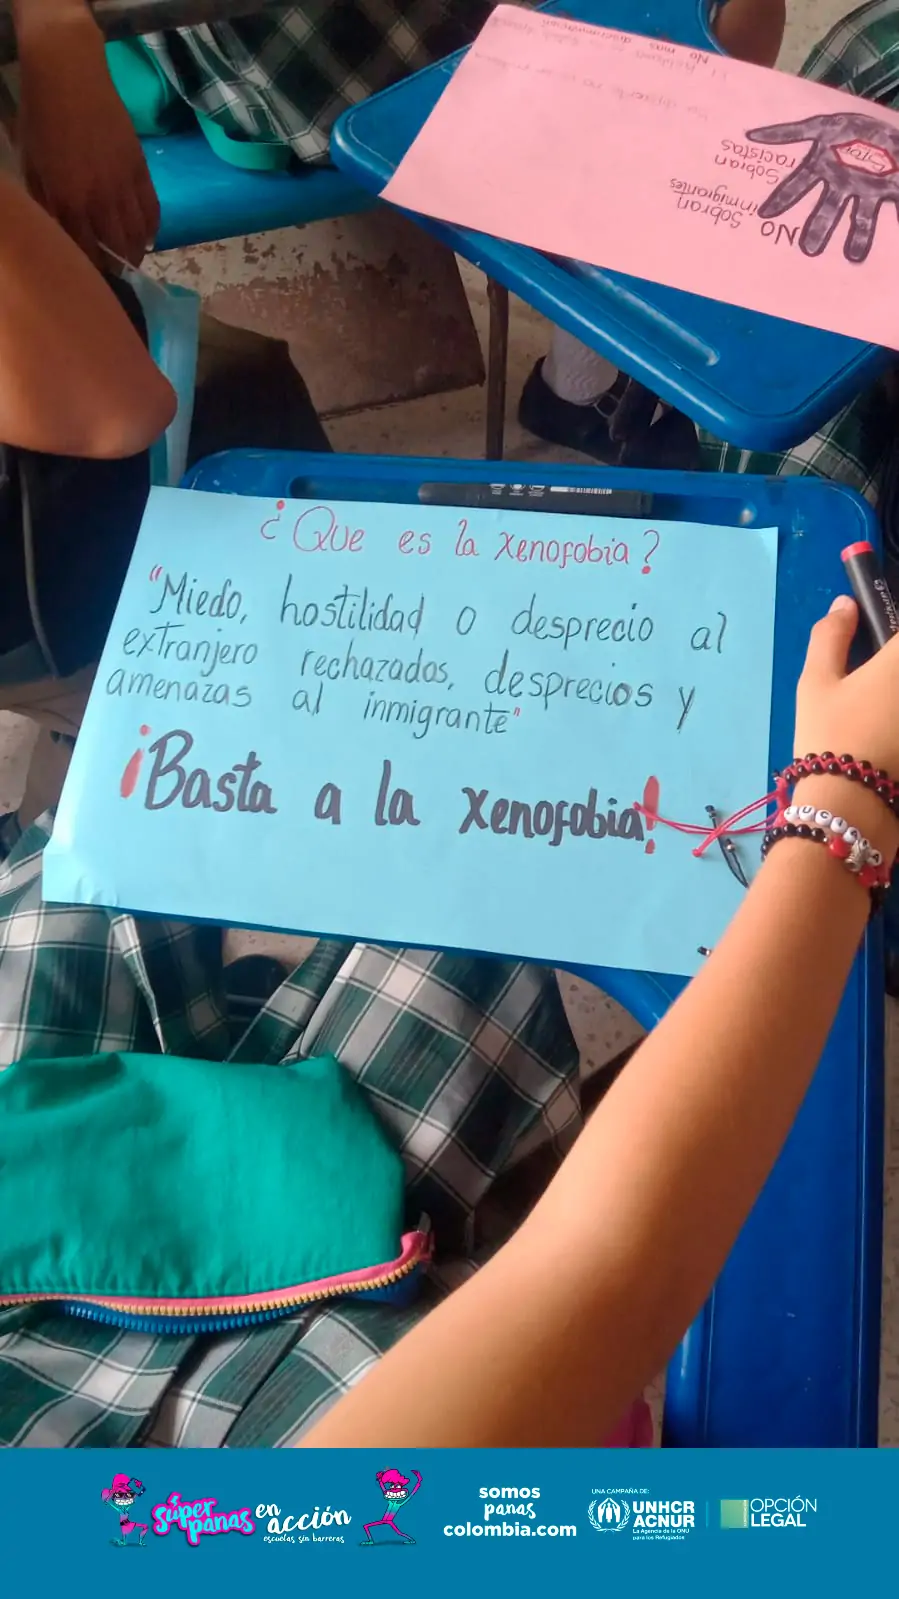 No mas discriminación
No
Sobran
inmigrantes
Sobran
racistas
STOP
¿Que es la xenofobia?
"Miedo, hostilidad o desprecio al
extranjero rechazados, desprecios y
amenazas al inmigrante"
¡Basta a la xenofobia!
LUCIANA
Súper
panas
en
acción
escuelas sin barreras
somos
panas
colombia.com
UNA CAMPAÑA DE:
UNHCR
ACNUR
La Agencia de la ONU
para los Refugiados
OPCIÓN
LEGAL